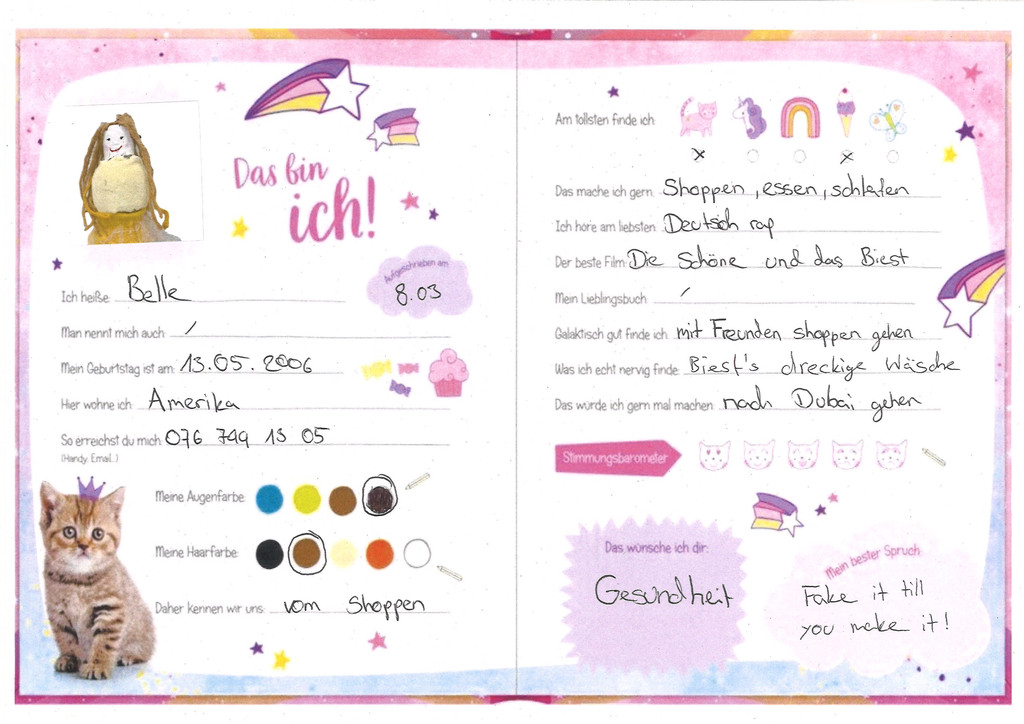 Das bin
ich!
Aufgeschrieben am:
8.03
Ich heiße: Belle
Man nennt mich auch: /
Mein Geburtstag ist am: 13.05.2006
Hier wohne ich: Amerika
So erreichst du mich: 076 749 13 05
(Handy, Email...)
Meine Augenfarbe:
Meine Haarfarbe:
Daher kennen wir uns: vom Shoppen
Am tollsten finde ich:
x x
Das mache ich gern: Shoppen, essen, schlafen
Ich höre am liebsten: Deutsch rap
Der beste Film: Die Schöne und das Biest
Mein Lieblingsbuch: /
Galaktisch gut finde ich: mit Freunden shoppen gehen
Was ich echt nervig finde: Biest's dreckige Wäsche
Das würde ich gern mal machen: nach Dubai gehen
Stimmungsbarometer
Das wünsche ich dir:
Gesundheit
Mein bester Spruch:
Fake it till
you make it!